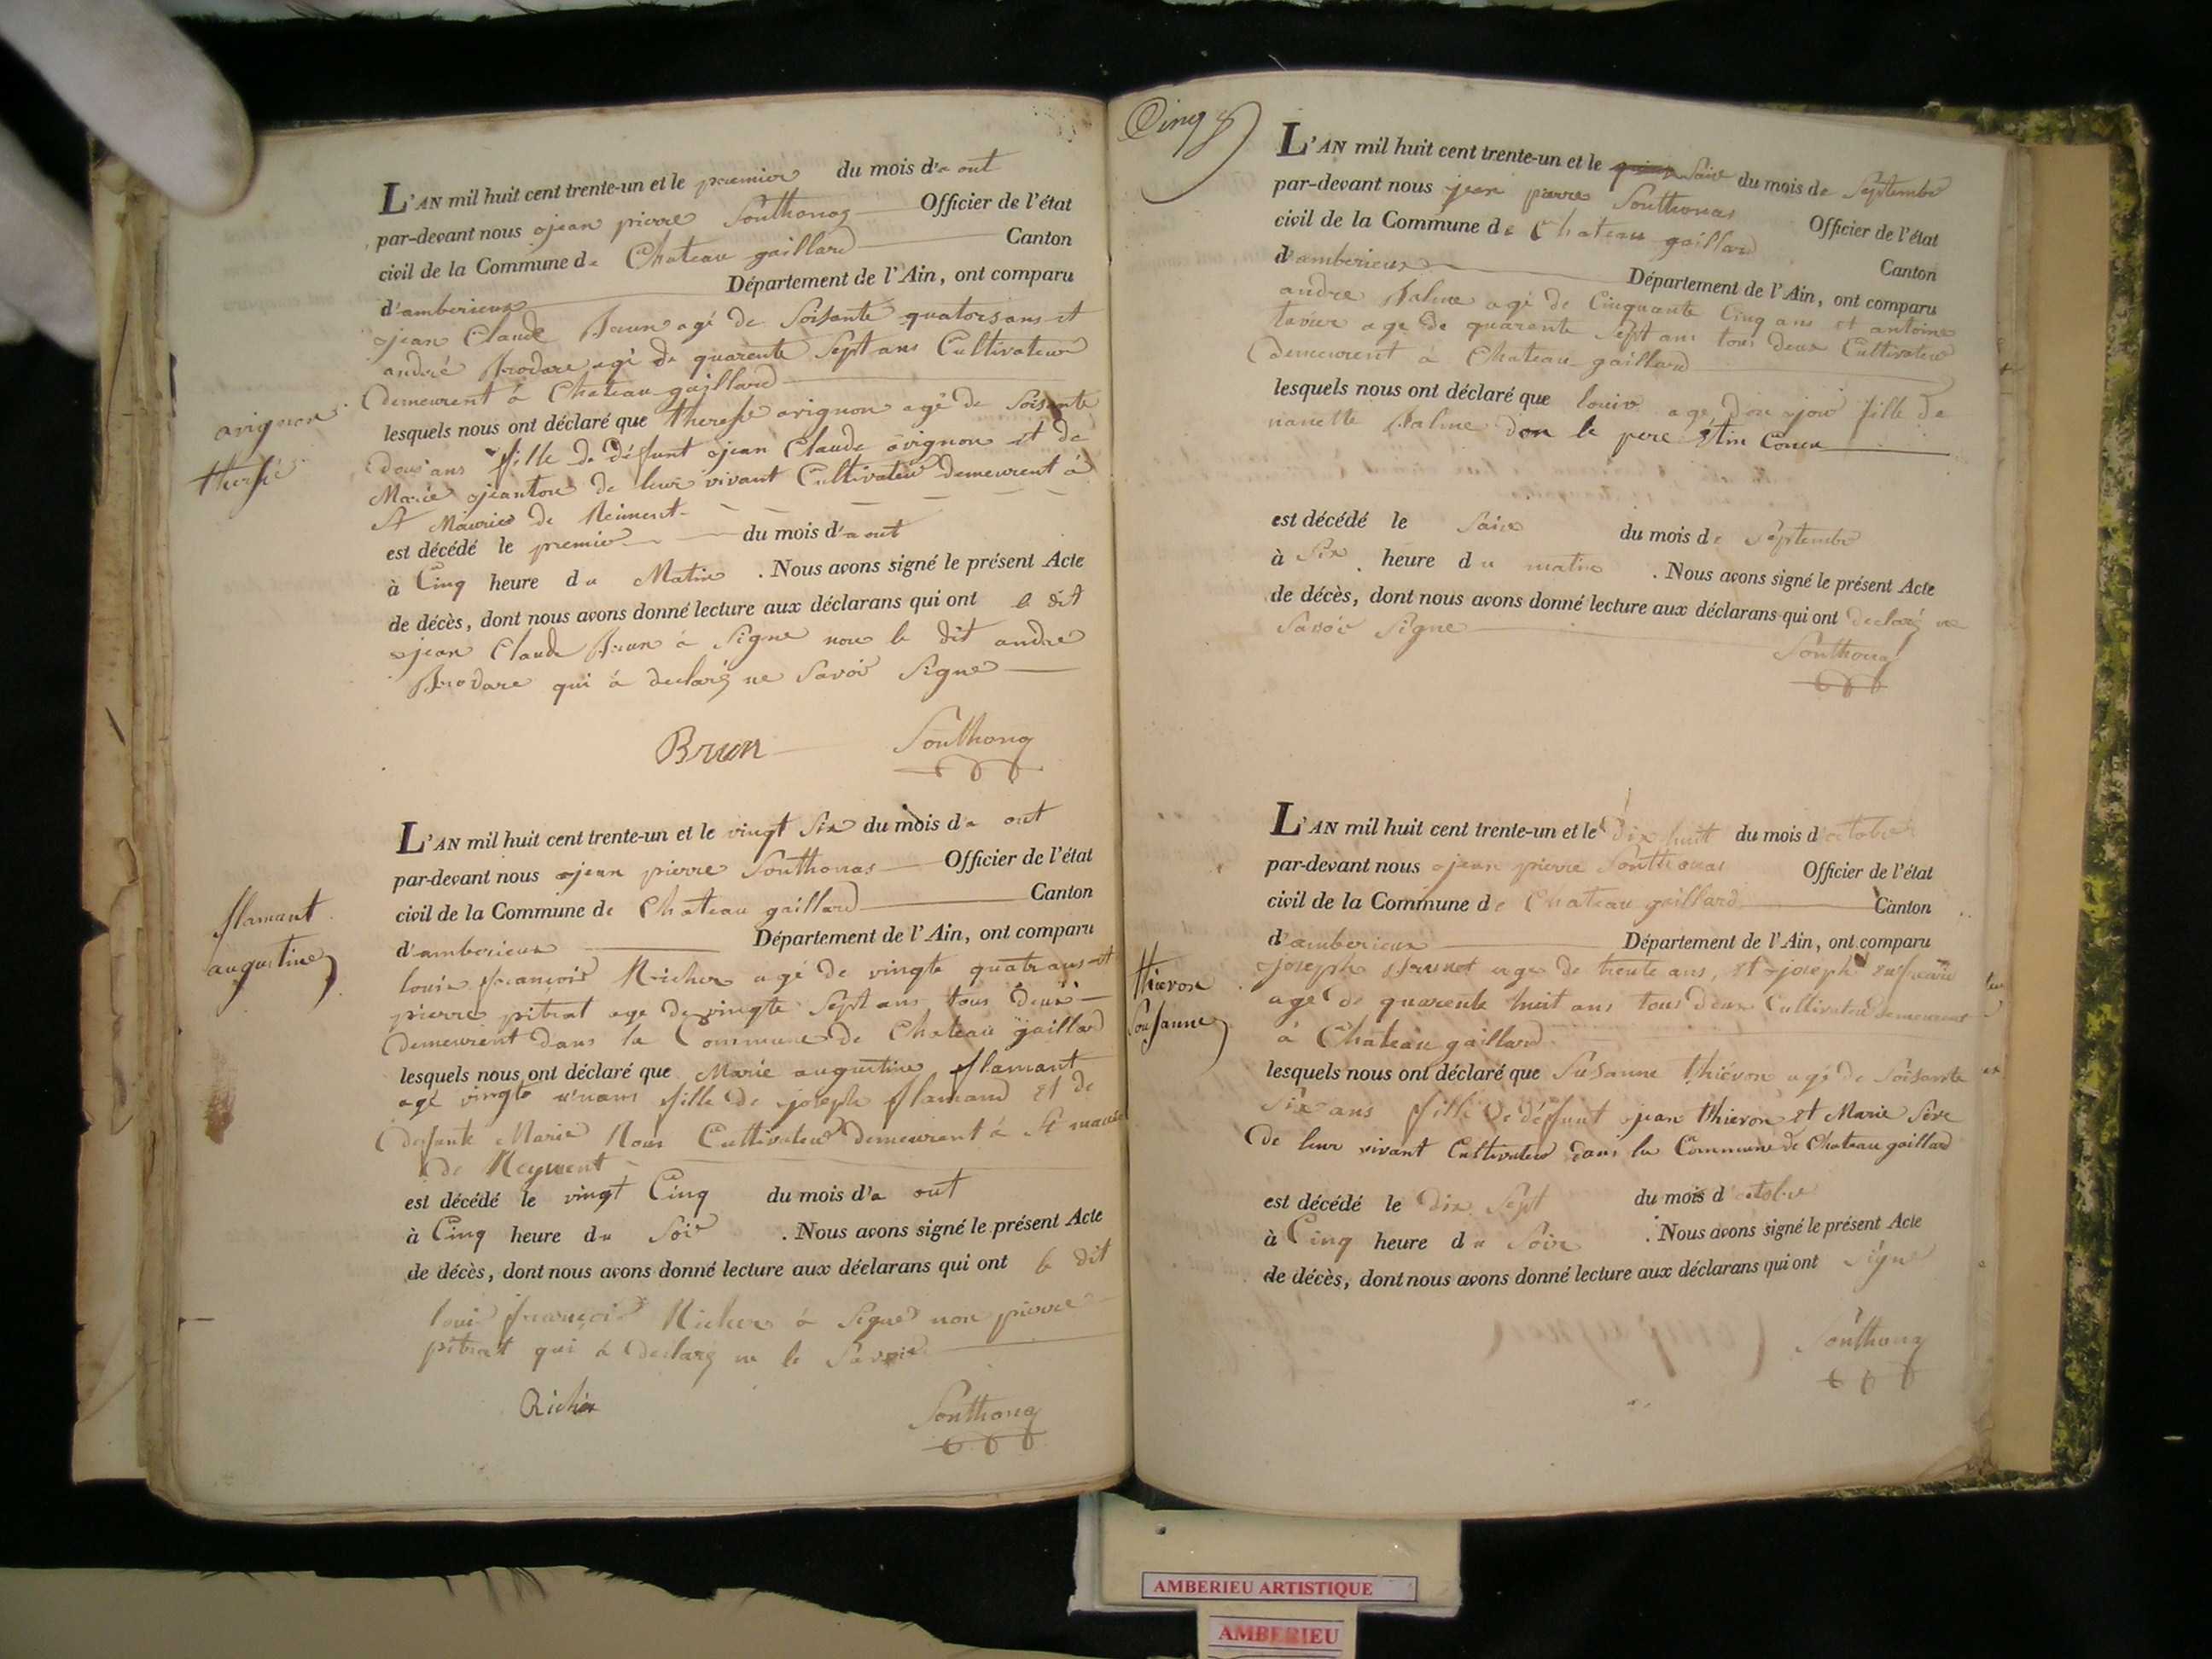 L'AN mil huit cent trente-un et le premier du mois d'a out
par-devant nous jean pierre Southonas Officier de l'état
civil de la Commune de Chateau gaillard Canton
d'amberieux Département de l'Ain, ont comparu
jean Claude Brun agé de Soisante quatorsans et
andré Brodare agé de quarente Sept ans Cultivateur
demeurent à Chateau gaillard
avignon
therese
lesquels nous ont déclaré que therese avignon agé de Soisente
dous ans fille de défunt jean Claude avignon et de
Marie jeanton de leur vivant Cultivateur demeurent à
St Maurice de Reiment
est décédé le premier du mois d'a out
à Cinq heure du Matin . Nous avons signé le présent Acte
de décès, dont nous avons donné lecture aux déclarans qui ont le dit
jean Claude Brun à Signe non le dit andre
Brodare qui à declaré ne Savoir Signe
Brun Southonas
L'AN mil huit cent trente-un et le vingt Six du mois d'a out
par-devant nous jean pierre Southonas Officier de l'état
civil de la Commune de Chateau gaillard Canton
d'amberieux Département de l'Ain, ont comparu
flamant
augustine
louis francois Richer agé de vingte quatrans et
pierre pitrat age de vingte Sept ans tous deux
demeurent dans la Commune de Chateau gaillard
lesquels nous ont déclaré que Marie augustine flamant
agé vingte u'nans fille de joseph flamand et de
defunte Marie Cultivateur demeurent à St maurice
de Reyment
est décédé le vingt Cinq du mois d'a out
à Cinq heure du Soir . Nous avons signé le présent Acte
de décès, dont nous avons donné lecture aux déclarans qui ont le dit
loui francois Richer à Signe non pierre
pitrat qui à declaré ne le Savoir
Richer Southonas
Cinq
L'AN mil huit cent trente-un et le Saise du mois de Septembre
par-devant nous jean pierre Southonas Officier de l'état
civil de la Commune de Chateau gaillard Canton
d'amberieux Département de l'Ain, ont comparu
andre agé de Cinquante Cinq ans et antoine
age de quarente Sept ans tous deux Cultivateur
demeurent à Chateau gaillard
lesquels nous ont déclaré que louis age jour fille de
nanette don le pere
est décédé le Saise du mois de Septembre
à Six heure du matin . Nous avons signé le présent Acte
de décès, dont nous avons donné lecture aux déclarans qui ont declaré ne
Savoir Signe
Southonas
L'AN mil huit cent trente-un et le dix huit du mois d'octobre
par-devant nous jean pierre Southonas Officier de l'état
civil de la Commune de Chateau gaillard Canton
d'amberieux Département de l'Ain, ont comparu
thievon
Sousanne
joseph Brunet age de trente ans, et joseph
age de quarente huit ans tous deux Cultivateur demeurent
à Chateau gaillard
lesquels nous ont déclaré que Susanne thiévon agé de Soisante
Six ans fille de défunt jean thievon et Marie Sere
de leur vivant Cultivateur dans la Commune de Chateau gaillard
est décédé le dix Sept du mois d'octobre
à Cinq heure du Soir . Nous avons signé le présent Acte
de décès, dont nous avons donné lecture aux déclarans qui ont Signe
Southonas
AMBERIEU ARTISTIQUE
AMBERIEU